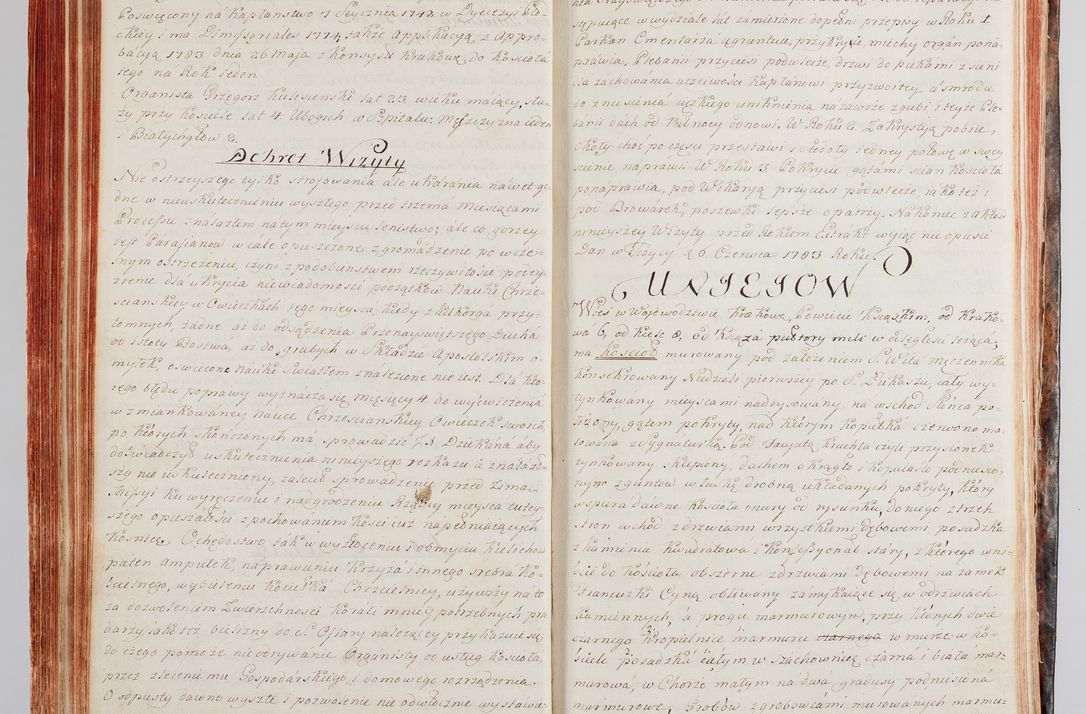 Poswięcony na Kapłaństwo 1 Stycznia 1742 w Dyecezyi Płoc-
kiey i ma Dimissoriales 1774, także Applikacyą z Appro-
bacyą 1783 dnia 26 maja z Konsystů Krakowů do Kościoła
tego na Rok ieden.
Organista Grzegorz lat 23 wieku máiący, słu-
ży przy kościele lat 4. Ubogich w Szpitalu: Męszczyzna ieden
i Białychgłow 2.
Dekret Wizyty
Nie ostrzeyszego tylko strofowania ale ukárania náwet go-
dne w nieuskutecznieniu wyszłego przed trzema miesiącami
Processu znalazłem na tym mieyscu lenistwo; ale co gorzey
iest Parafianow w cale opuszczone zgromádzenie po wcze-
snym ostrzeżeniu, czyni z podobunstwem rzeczywitości podey-
rzenie dla ukrycia niewiadomości początków Nauki Chrze-
scianskiey w Owieczkách tego mieysca, kiedy z kilkorga przy-
tomnych, żadne aż do odsądzenia Przenayświętszego Duchá
od Istoty Boskiey, aż do grubych w Składzie Apostolskim o-
myłek, oswiecone nauki światłem znalezione nie iest. Dla któ-
rego błędu poprawy wyznacza się miesięcy 4 do wycwiczenia
w zmiankowáney nauce Chrzescianskiey Owieczek swoich
po których skończonych má sprowadzić J. X. Dziekána aby
doswiadczył uskutecznienia ninieyszego rozkazu á znalazł-
szy nie uskuteczniony, zalecił sprowadzenie przed zimą
Missyi ku wyręczeniu i nadgrodzeniu Rządcy mieysca tutey-
szego opieszałości z pochowaniem kości iuż napełniaiących
kośnicę. Ochędostwo ták w wyzłoceniu i obmyciu kielichow
paten ampułek, naprawieniu krzyża i innego srebra ko-
scielnego, wybieleniu kociołká Chrzcielnicy, używszy na to
za dozwoleniem Zwierzchności koráli mniey potrzebnych przy-
darzy, iako też bielizny do S. Ofiary należącey przykazuie się
do czego pomoże nieodrywánie Organisty od usług kościoła,
przez zlecenie mu Gospodarskiego i domowego rozrządzenia.
O odpusty dawno wyszłe i pozwolenie nie odwłocznie wystawia-
sypuiące w wydziale lat zamierzone dopełni przepisy w Roku 1
Parkan Cmentarza ugruntuie, przykryie, miechy organ pona-
prawia, Plebanii przyciesi podwiedzie, drzwi do piekárni z sieni
dla záchowania uczciwości Kapłanowi przyzwoitey, a smrodu
do zniesienia cięzkiego uniknienia na zawsze zgubi i teyże Ple-
banii dach od Pułnocy ponowi. W Roku 2. Zakrystyą pobiie,
szkoły choć po częsci przestawi i stodoły iedney połowę w swey
scienie náprawi. W Roku 3. Pokrycie gątámi ścian kościoła
ponaprawia, pod Wikáryą przyciesi podwiedzie, iako też i
pod Browárek, poszewki lepsze opatrzy. Na koniec zakład
ninieyszey Wizyty przed Rokiem Parafii wyiąć nie opuści
Dan w Tczycy d. 6. Czerwca 1783 Roku.
UNIEIOW
Wieś w Woiewództwie Krakow. Powiecie Ksiąskim, od Krako-
wa 6, od Kielc 8, od Książa pułtory mili w odległosci leżąca,
ma Kościoł murowany pod założeniem S. Wita męczenniká
konsekrowany Niedzieli pierwszey po S. Łukaszu, cały wy-
tynkowany mieyscami nadrysowany, na wschod Słońca po-
łożony, gątem pokryty, nad którym kopułka czerwono má-
lowana z Sygnaturką. Pod Facyatą Kruchta czyli przysionek
tynkowany sklepiony, duchem okrągło i kopulasto podniesio-
nym z guntow w łuskę drobną układanych pokryty, który
wspiera dawne kościoła mury od rysunku, do niego z trzech
stron wchod z drzwiami wszystkiemi dębowemi posadzka
z kámienia kwadratowa i Konfessyonał stáry, z którego wni-
ście do kościoła obszerne z drzwiami dębowemi na zamek
francuzki cyną oblewany zamykaiące się w odrzwiach
kamiennych, a progu marmurowym, przy których dwie
czarnego kropielnice marmuru w murze w ko-
ściele posadzká całym w szachownicę czarná i białá mar-
murowá, w Chorze małym na dwa gradusy podniesiona
marmurowe, Grobow z grobowcami murowanych marmu-